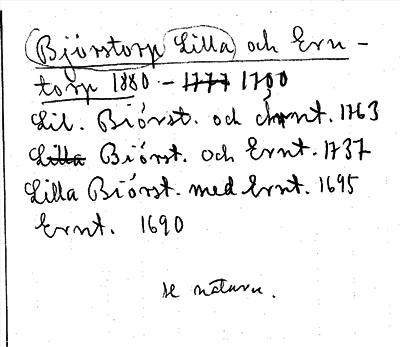 Björstorp Lilla och Ern-
torp 1880 - 1777 1700
Lil. Biörst. och Ernt. 1763
Lilla Biörst. och Ernt. 1737
Lilla Biörst. med Ernt. 1695
Ernt. 1690
se